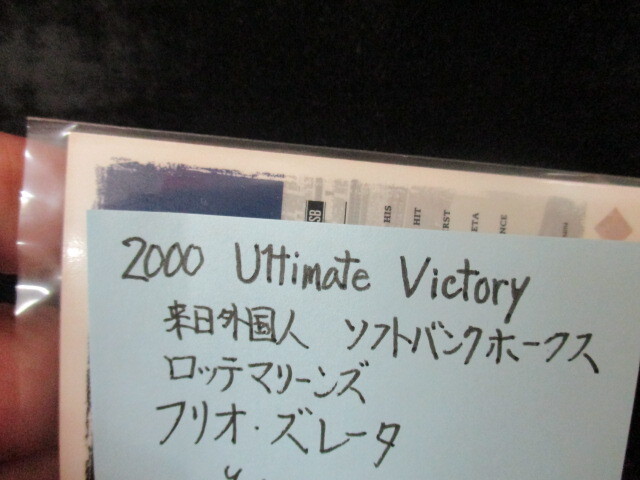 SB
HIS
HIT
ERST
ETA
NCE
2000 Ultimate Victory
来日外国人 ソフトバンクホークス
ロッテマリーンズ
フリオ・ズレータ